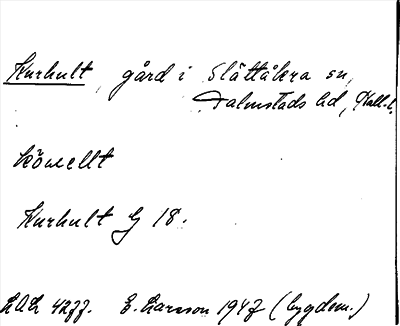 Kurhult, gård i Slättåkra sn,
Halmstads hd, Hall. l.
Kurhult G 18.
LAL 4277. E. Larsson 1947 (bygdem.)